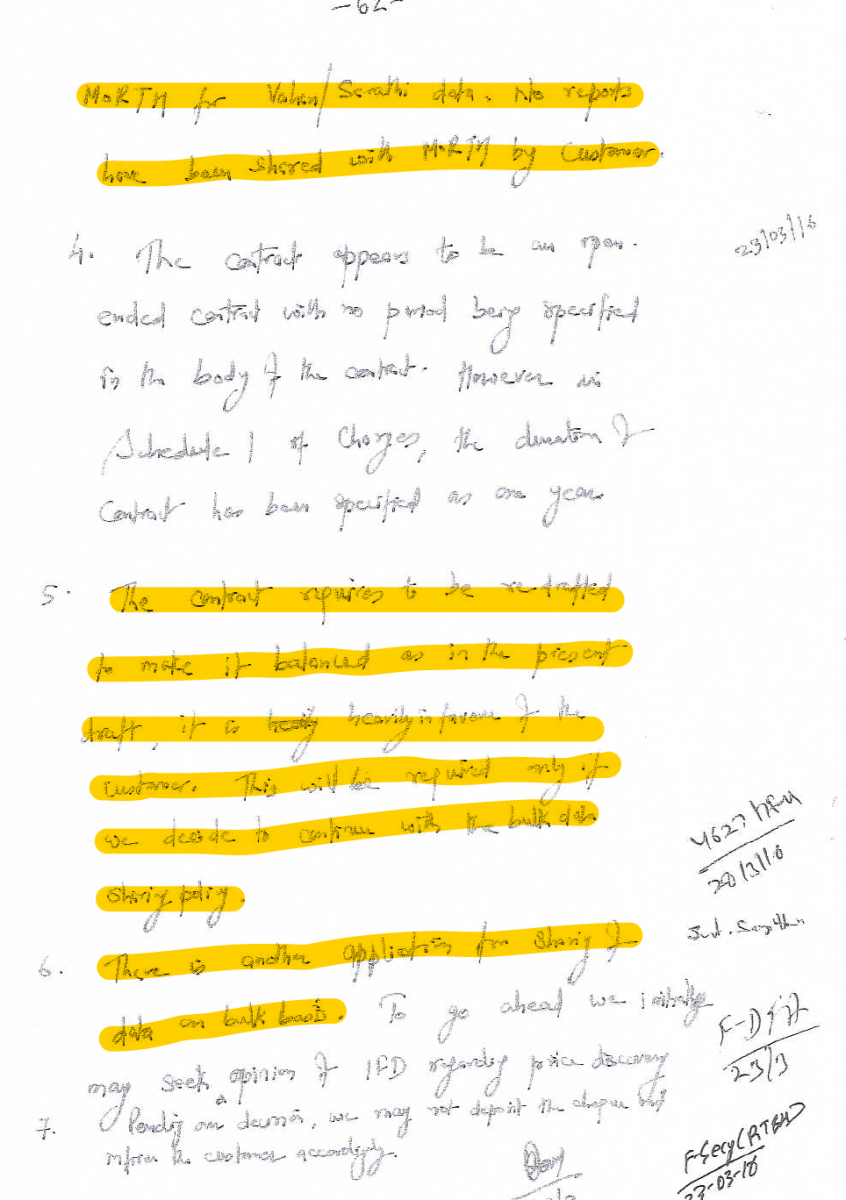 -62-
MoRTH for Vahan/Sarathi data. No reports
have been shared with MoRTH by Customer.
4. The contract appears to be an open-
ended contract with no period being specified
in the body of the contract. However in
Schedule 1 of Charges, the duration of
Contract has been specified as one year
5. The contract requires to be re-drafted
to make it balanced as in the present
draft, it is heavily in favour of the
customer. This will be required only if
we decide to continue with the bulk data
sharing policy.
6. There is another application for sharing of
data on bulk basis. To go ahead we initially
may seek opinion of IFD regarding price discovery
7. Pending our decision, we may not deposit the cheque and
inform the customer accordingly.
23/03/18
20/3/18
23/3
F-Secy (RT&H)
23-03-18